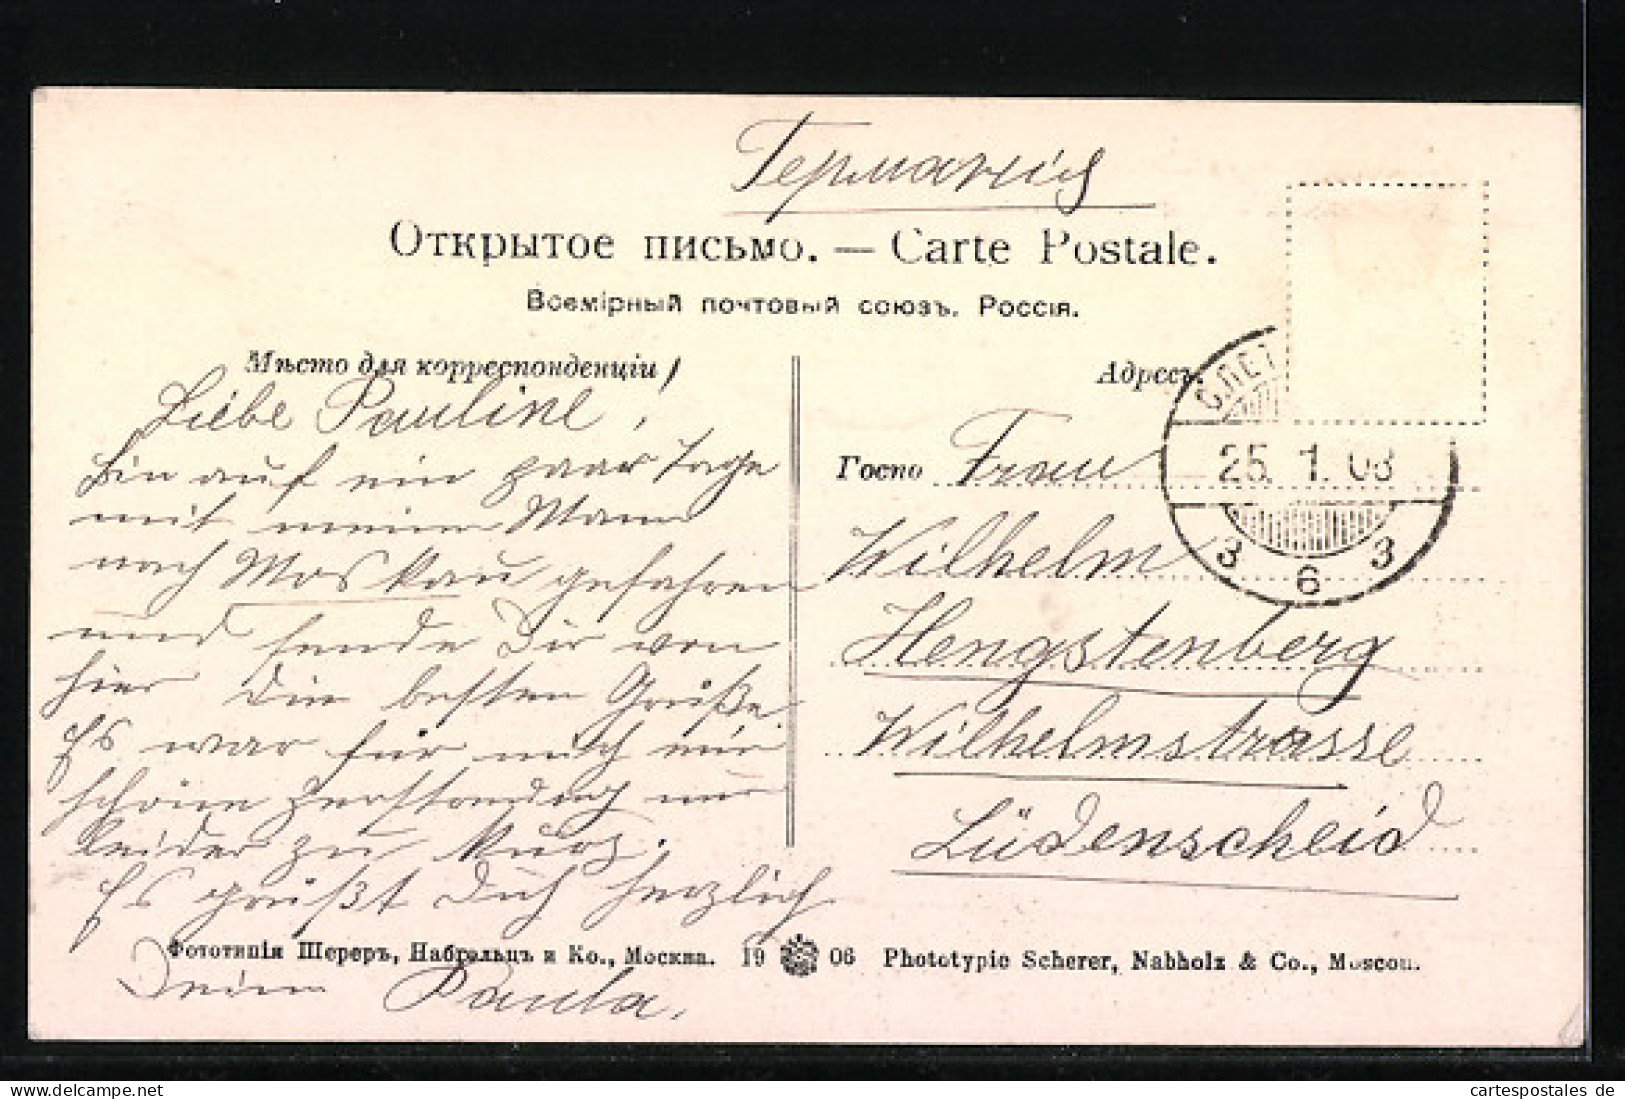 Германія
Открытое письмо. — Carte Postale.
Всемірный почтовый союзъ. Россія.
Мѣсто для корреспонденціи
Адресъ.
С.ПЕТ
25. 1. 08
3 6 3
Liebe Pauline!
Bin auf ein paar Tage
mit meinem Mann
nach Moskau gefahren
und sende Dir von
hier die besten Grüße.
Es war für mich eine
schöne Zerstreuung nur
leider zu kurz.
Es grüßt Dich herzlich
Deine Paula.
Госпо Frau
Wilhelm
Hengstenberg
Wilhelmstrasse
Lüdenscheid
Фототипія Шереръ, Набгольцъ и Ко., Москва. 19 06 Phototypie Scherer, Nabholz & Co., Moscou.
cartespostales.de